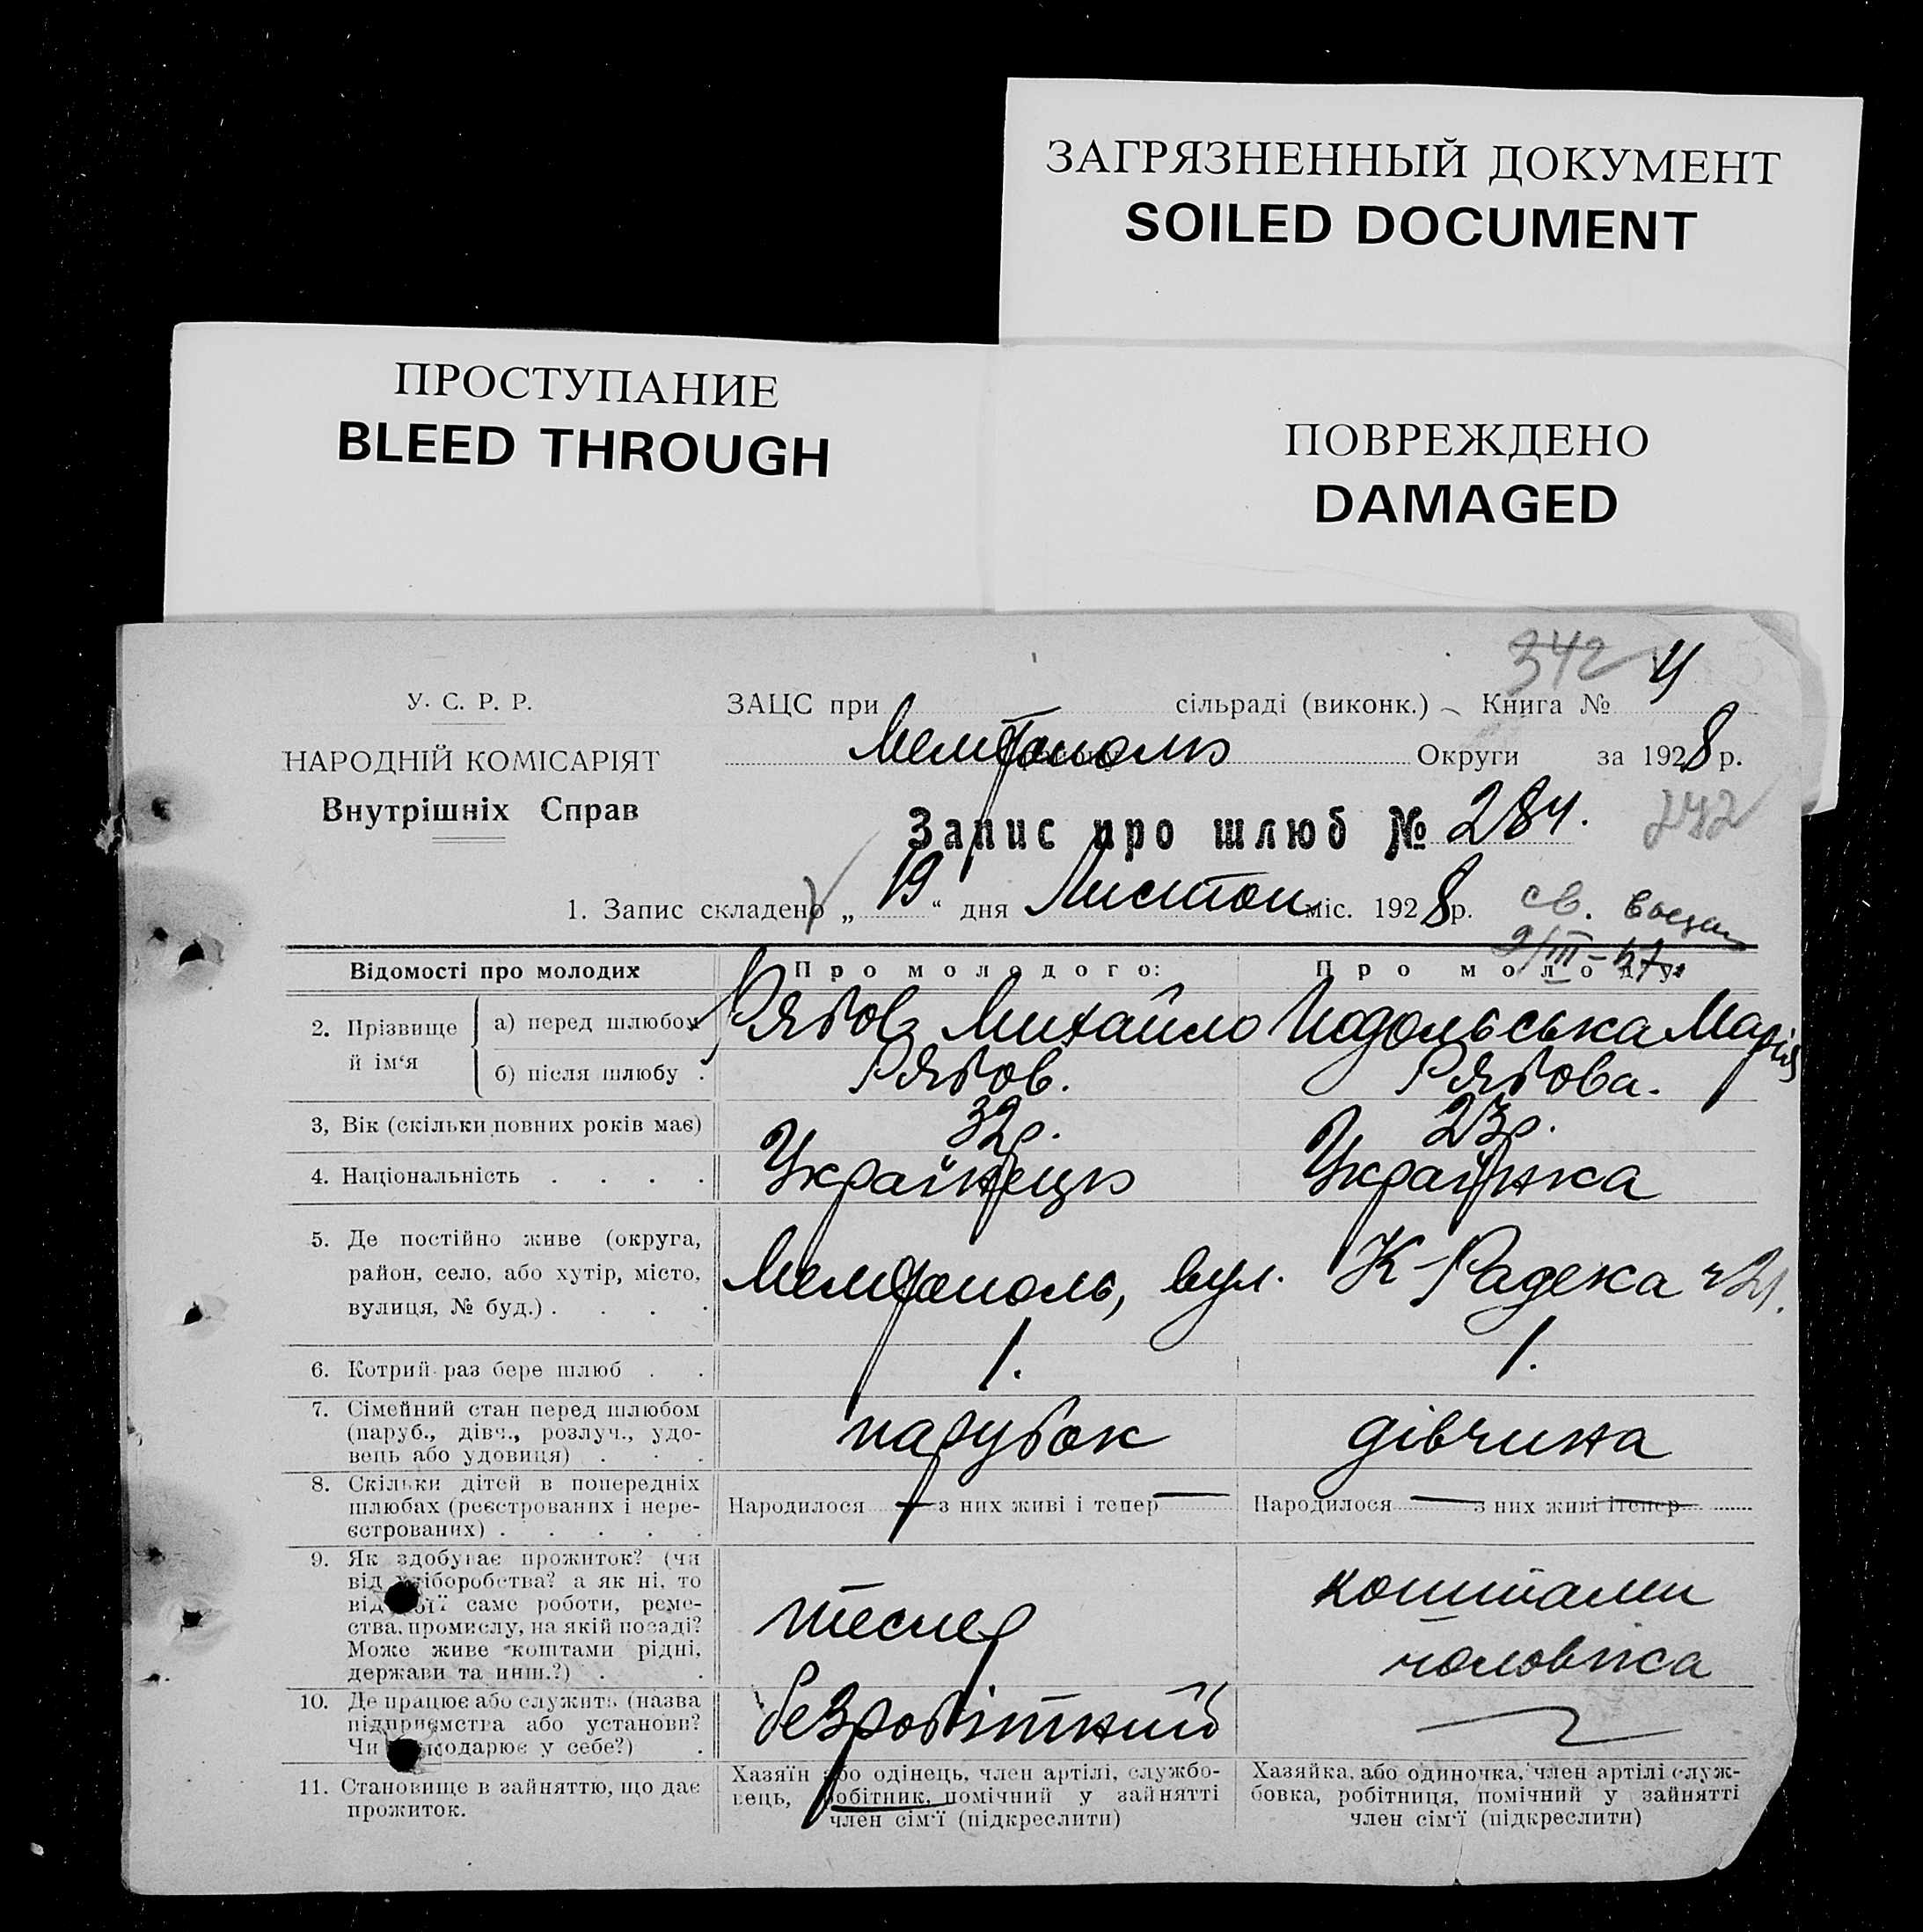 ЗАГРЯЗНЕННЫЙ ДОКУМЕНТ
SOILED DOCUMENT
ПРОСТУПАНИЕ
BLEED THROUGH
ПОВРЕЖДЕНО
DAMAGED
342
У. С. Р. Р.
ЗАЦС при сільраді (виконк.) Книга №
НАРОДНІЙ КОМІСАРІЯТ
Мелітополь Округи за 1928 р.
Внутрішніх Справ
Запис про шлюб № 284.
242
1. Запис складено „ 19 “ дня Листоп міс. 1928 р.
св.
9/III-47
Відомості про молодих
Про молодого:
Про молоду:
2. Прізвище й ім‘я
а) перед шлюбом
Рябов Михайло
Подольська Марія
б) після шлюбу .
Рябов.
Рябова.
3, Вік (скільки повних років має)
32р.
23р.
4. Національність . . . .
Українець
Українка
5. Де постійно живе (округа,
район, село, або хутір, місто,
вулиця, № буд.) . . . .
Мелітополь, вул. К Радека ч 21.
6. Котрий раз бере шлюб . .
1.
1.
7. Сімейний стан перед шлюбом
(паруб., дівч., розлуч., удо-
вець або удовиця) . . .
парубок
дівчина
8. Скільки дітей в попередніх
шлюбах (реєстрованих і нере-
єстрованих) . . . . .
Народилося — з них живі і тепер —
Народилося — з них живі і тепер
9. Як здобуває прожиток? (чи
від хліборобства? а як ні, то
від якої саме роботи, реме-
ства, промислу, на якій посаді?
Може живе коштами рідні,
держави та инш.?) . .
тесляр
коштами
чоловіка
10. Де працює або служить (назва
підприємства або установи?
Чи господарює у себе?) .
безробітний
11. Становище в зайняттю, що дає
прожиток.
Хазяїн або одінець, член артілі, службо-
вець, робітник, помічний у зайнятті
член сім‘ї (підкреслити)
Хазяйка, або одиночка, член артілі служ-
бовка, робітниця, помічний у зайнятті
член сім‘ї (підкреслити)